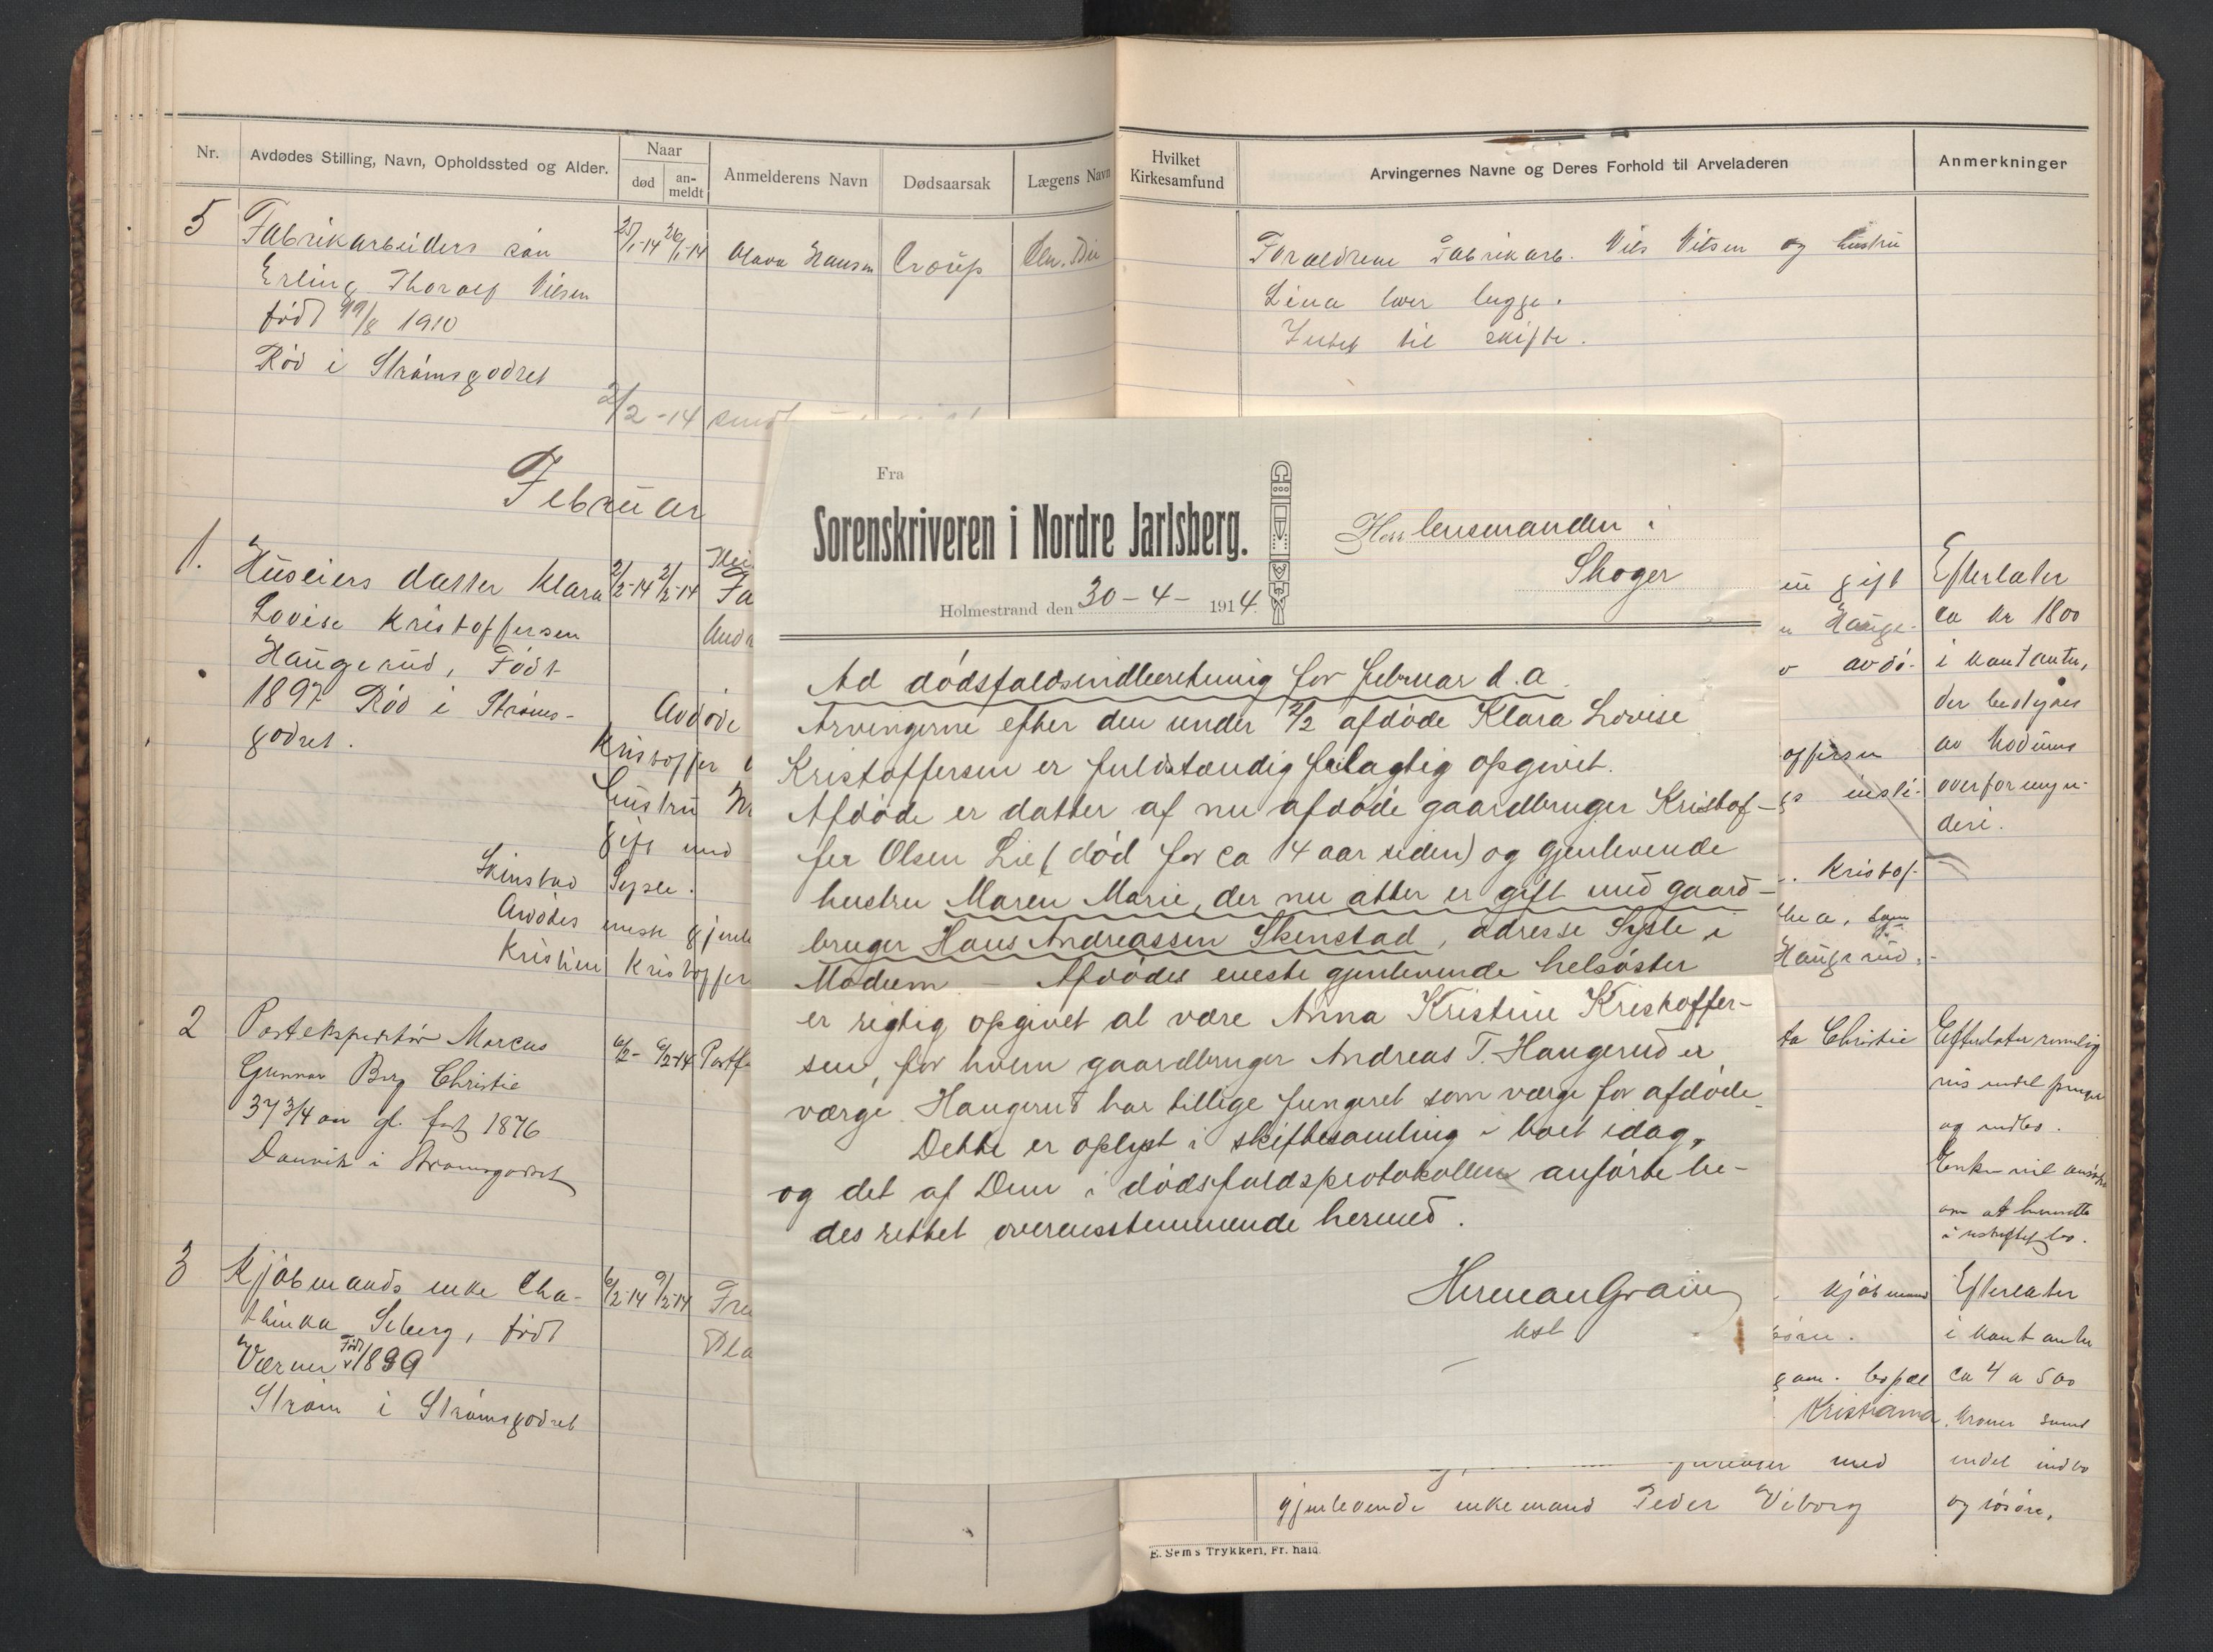 Nr.
Avdødes Stilling, Navn, Opholdssted og Alder.
Naar
død
an-
meldt
Anmelderens Navn
Dødsaarsak
Lægens Navn
Hvilket
Kirkesamfund
Arvingernes Navne og Deres Forhold til Arveladeren
Anmerkninger
5
Fabrikarbeiders søn
Erling Thoralf Nilsen
født 19/8 1910
Rød i Strømsgodset
25/1-14 26/1-14
Olava Hansen
Croup
Foraeldrene Fabrikarb. Nils Nilsen og hustru
Lina lever begge.
Intet til skifte.
2/2-14 sendt
Februar
1.
Huseiers datter Klara
Lovise Kristoffersen
Haugerud, Født
1897 Rød i Strøms-
godset.
2/2-14 2/2-14
Fa
Avdøde
Kristoffer
hustru
gift med
Skinstad Sysle.
Avdødes enest gjenle
Kristine Kristoffer
en gift
Hauge-
avdø-
offersen
Kristof-
thea, som
Haugerud.
Efterlater
ca kr 1800
i kontanter,
der bestyres
av Modums
overformyn-
deri.
2
Postekspeditør Marcus
Gunnar Borg Christie
37 3/4 aar gl. født 1876
Danvik i Strømsgodset
6/2- 6/2-14 Postf
ta Christie
Efterlater rimelig
vis endel penge
og indbo.
Enken vil ansøke
om at hensitte
i uskiftet bo.
3
Kjøbmands enke Cha-
thinka Seberg, født
Værner Født 1839
Strøm i Strømsgodset
6/2-14 9/2-14 Fru
kjøbmand
Kristiania
med
gjenlevende enkemand Peder Viborg
Efterlater
i kontanter
ca 4 a 500
kroner samt
endel indbo
og løsøre,
E. Sems Trykkeri, Fr.hald.
Fra
Sorenskriveren i Nordre Jarlsberg.
Holmestrand den 30-4- 1914.
Herr lensmanden i
Skoger
Ad dødsfaldsindberetning for februar d.a.
Arvingerne efter den under 2/2 afdøde Klara Lovise
Kristoffersen er fuldstændig feilagtig opgivet.
Afdøde er datter af nu afdøde gaardbruger Kristof-
fer Olsen Lie (død for ca 14 aar siden) og gjenlevende
hustru Maren Marie, der nu atter er gift med gaard-
bruger Hans Andreassen Skenstad, adresse Sysle i
Modum. - Afdødes eneste gjenlevende helsøster
er rigtig opgivet at være Anna Kristine Kristoffer-
sen, for hvem gaardbruger Andreas T. Haugerud er
værge. Haugerud har tillige fungeret som værge for afdøde.
Dette er oplyst i skiftesamling i boet idag,
og det af Dem i dødsfaldsprotokollen anførte be-
des rettet overensstemmende hermed.
Herman Gram
kst